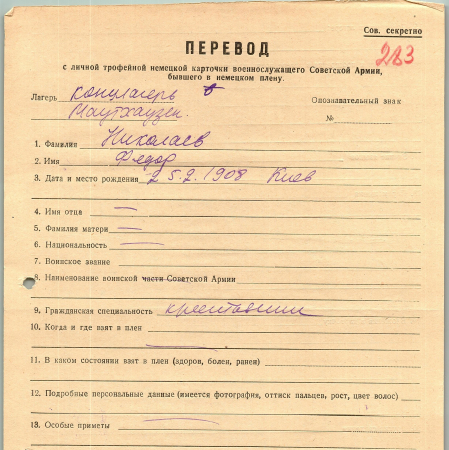 Сов. секретно
ПЕРЕВОД
283
с личной трофейной немецкой карточки военнослужащего Советской Армии,
бывшего в немецком плену.
Лагерь концлагерь
Опознавательный знак
Маутхаузен.
№
1. Фамилия Николаев
2. Имя Федор
3. Дата и место рождения 25.2.1908 Киев
4. Имя отца —
5. Фамилия матери —
6. Национальность —
7. Воинское звание
8. Наименование воинской части Советской Армии
9. Гражданская специальность
10. Когда и где взят в плен
—
11. В каком состоянии взят в плен (здоров, болен, ранен)
—
12. Подробные персональные данные (имеется фотография, оттиск пальцев, рост, цвет волос)
13. Особые приметы —